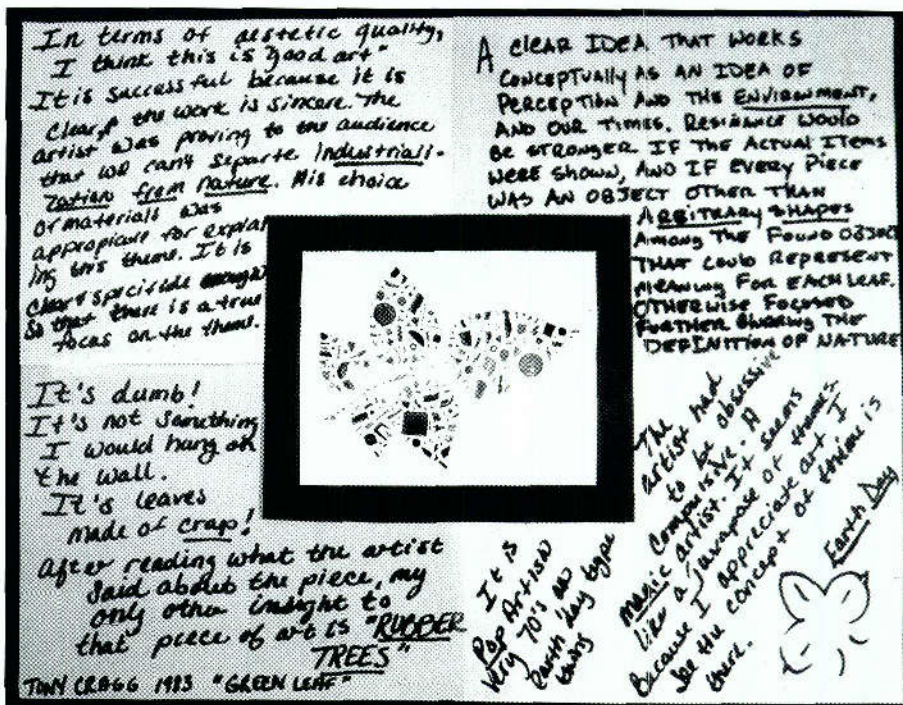 In terms of aestetic quality,
I think this is "good art"
It is successful because it is
clear, & the work is sincere. The
artist was proving to the audience
that we can't separte Industriali-
zation from nature. His choice
of materials was
appropicure for explai
ing this theme. It is
clear & specific enough
So that there is a true
focus on the theme.
A CLEAR IDEA THAT WORKS
CONCEPTUALLY AS AN IDEA OF
PERCEPTION AND THE ENVIRONMENT,
AND OUR TIMES. RESINANCE WOULD
BE STRONGER IF THE ACTUAL ITEMS
WERE SHOWN, AND IF EVERY PIECE
WAS AN OBJECT OTHER THAN
ARBITRARY SHAPES
AMONG THE FOUND OBJECT
THAT COULD REPRESENT
MEANING FOR EACH LEAF.
OTHERWISE FOCUSED
FURTHER BLURRING THE
DEFINITION OF NATURE
It's dumb!
It's not something
I would hang on
the wall.
It's leaves
made of crap!
After reading what the artist
said about the piece, my
only other insight to
that piece of art is "RUBBER
TREES"
TONY CRAGG 1983 "GREEN LEAF"
It is
Pop Artish
Very 70's an
Earth day type
thing
The
artist had
to be obsessive
Compulsive. A
artist. It seems
like a juxtapose of themes.
Because I appreciate art I
see the concept of theme is
there.
Earth Day